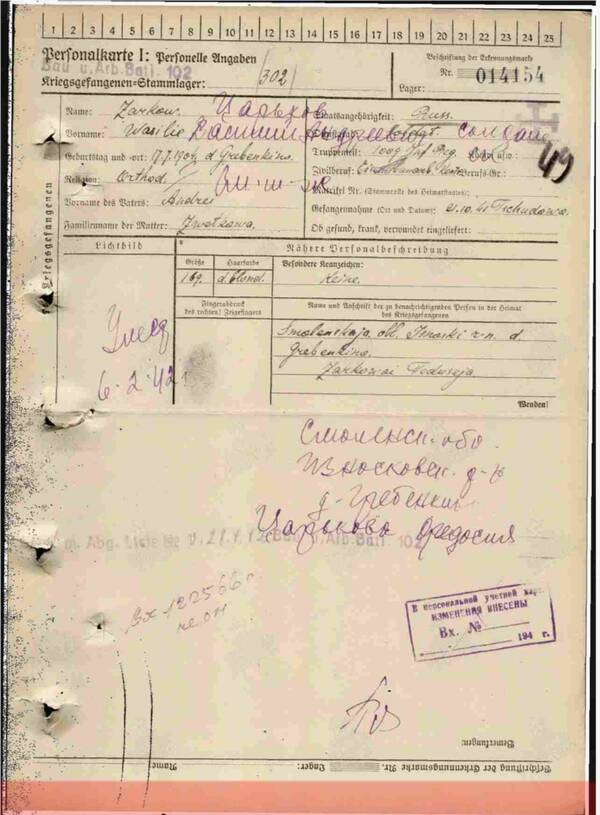 1 2 3 4 5 6 7 8 9 10 11 12 13 14 15 16 17 18 19 20 21 22 23 24 25
Personalkarte I: Personelle Angaben
Bau u. Arb. Batl. 102
Kriegsgefangenen-Stammlager: 302
Beschriftung der Erkennungsmarke
Nr. 014154
Lager:
Name: Zarkow. Царьков
Vorname: Wasilie Василий
Geburtstag und -ort: 17.7.1904. d Grebenkino.
Religion: Orthod.
Vorname des Vaters: Andrei
Familienname der Mutter: Zwetkowa.
Staatsangehörigkeit: Russ.
Soldat. солдат
Truppenteil: 1009 Inf Reg.
Zivilberuf: Berufs-Gr.:
Matrikel Nr. (Stammrolle des Heimatstaates):
Gefangennahme (Ort und Datum): 21.10.41 Tschudowo.
Ob gesund, krank, verwundet eingeliefert:
49
Kriegsgefangenen
Lichtbild
Nähere Personalbeschreibung
Größe
Haarfarbe
Besondere Kennzeichen:
169. d. blond.
Keine.
Fingerabdruck
des rechten! Zeigefingers
Name und Anschrift der zu benachrichtigenden Person in der Heimat
des Kriegsgefangenen
Smolenskaja obl. Isnoski r-n. d.
Grebenkino.
Zarkowai Fedoseja.
Wenden!
Умер
6.2.42
Смоленск. обл.
Износковск. р-н
д. Гребенкин
Царькова Федосия
m. Abg. Liste Nr v. 21.4.42 Bau u. Arb. Batl. 102
Вх 122566
В персональной учетной кар.
ИЗМЕНЕНИЯ ВНЕСЕНЫ
Вх. №
194 г.
Bemerkungen:
Beschriftung der Erkennungsmarke Nr. Lager: Name: